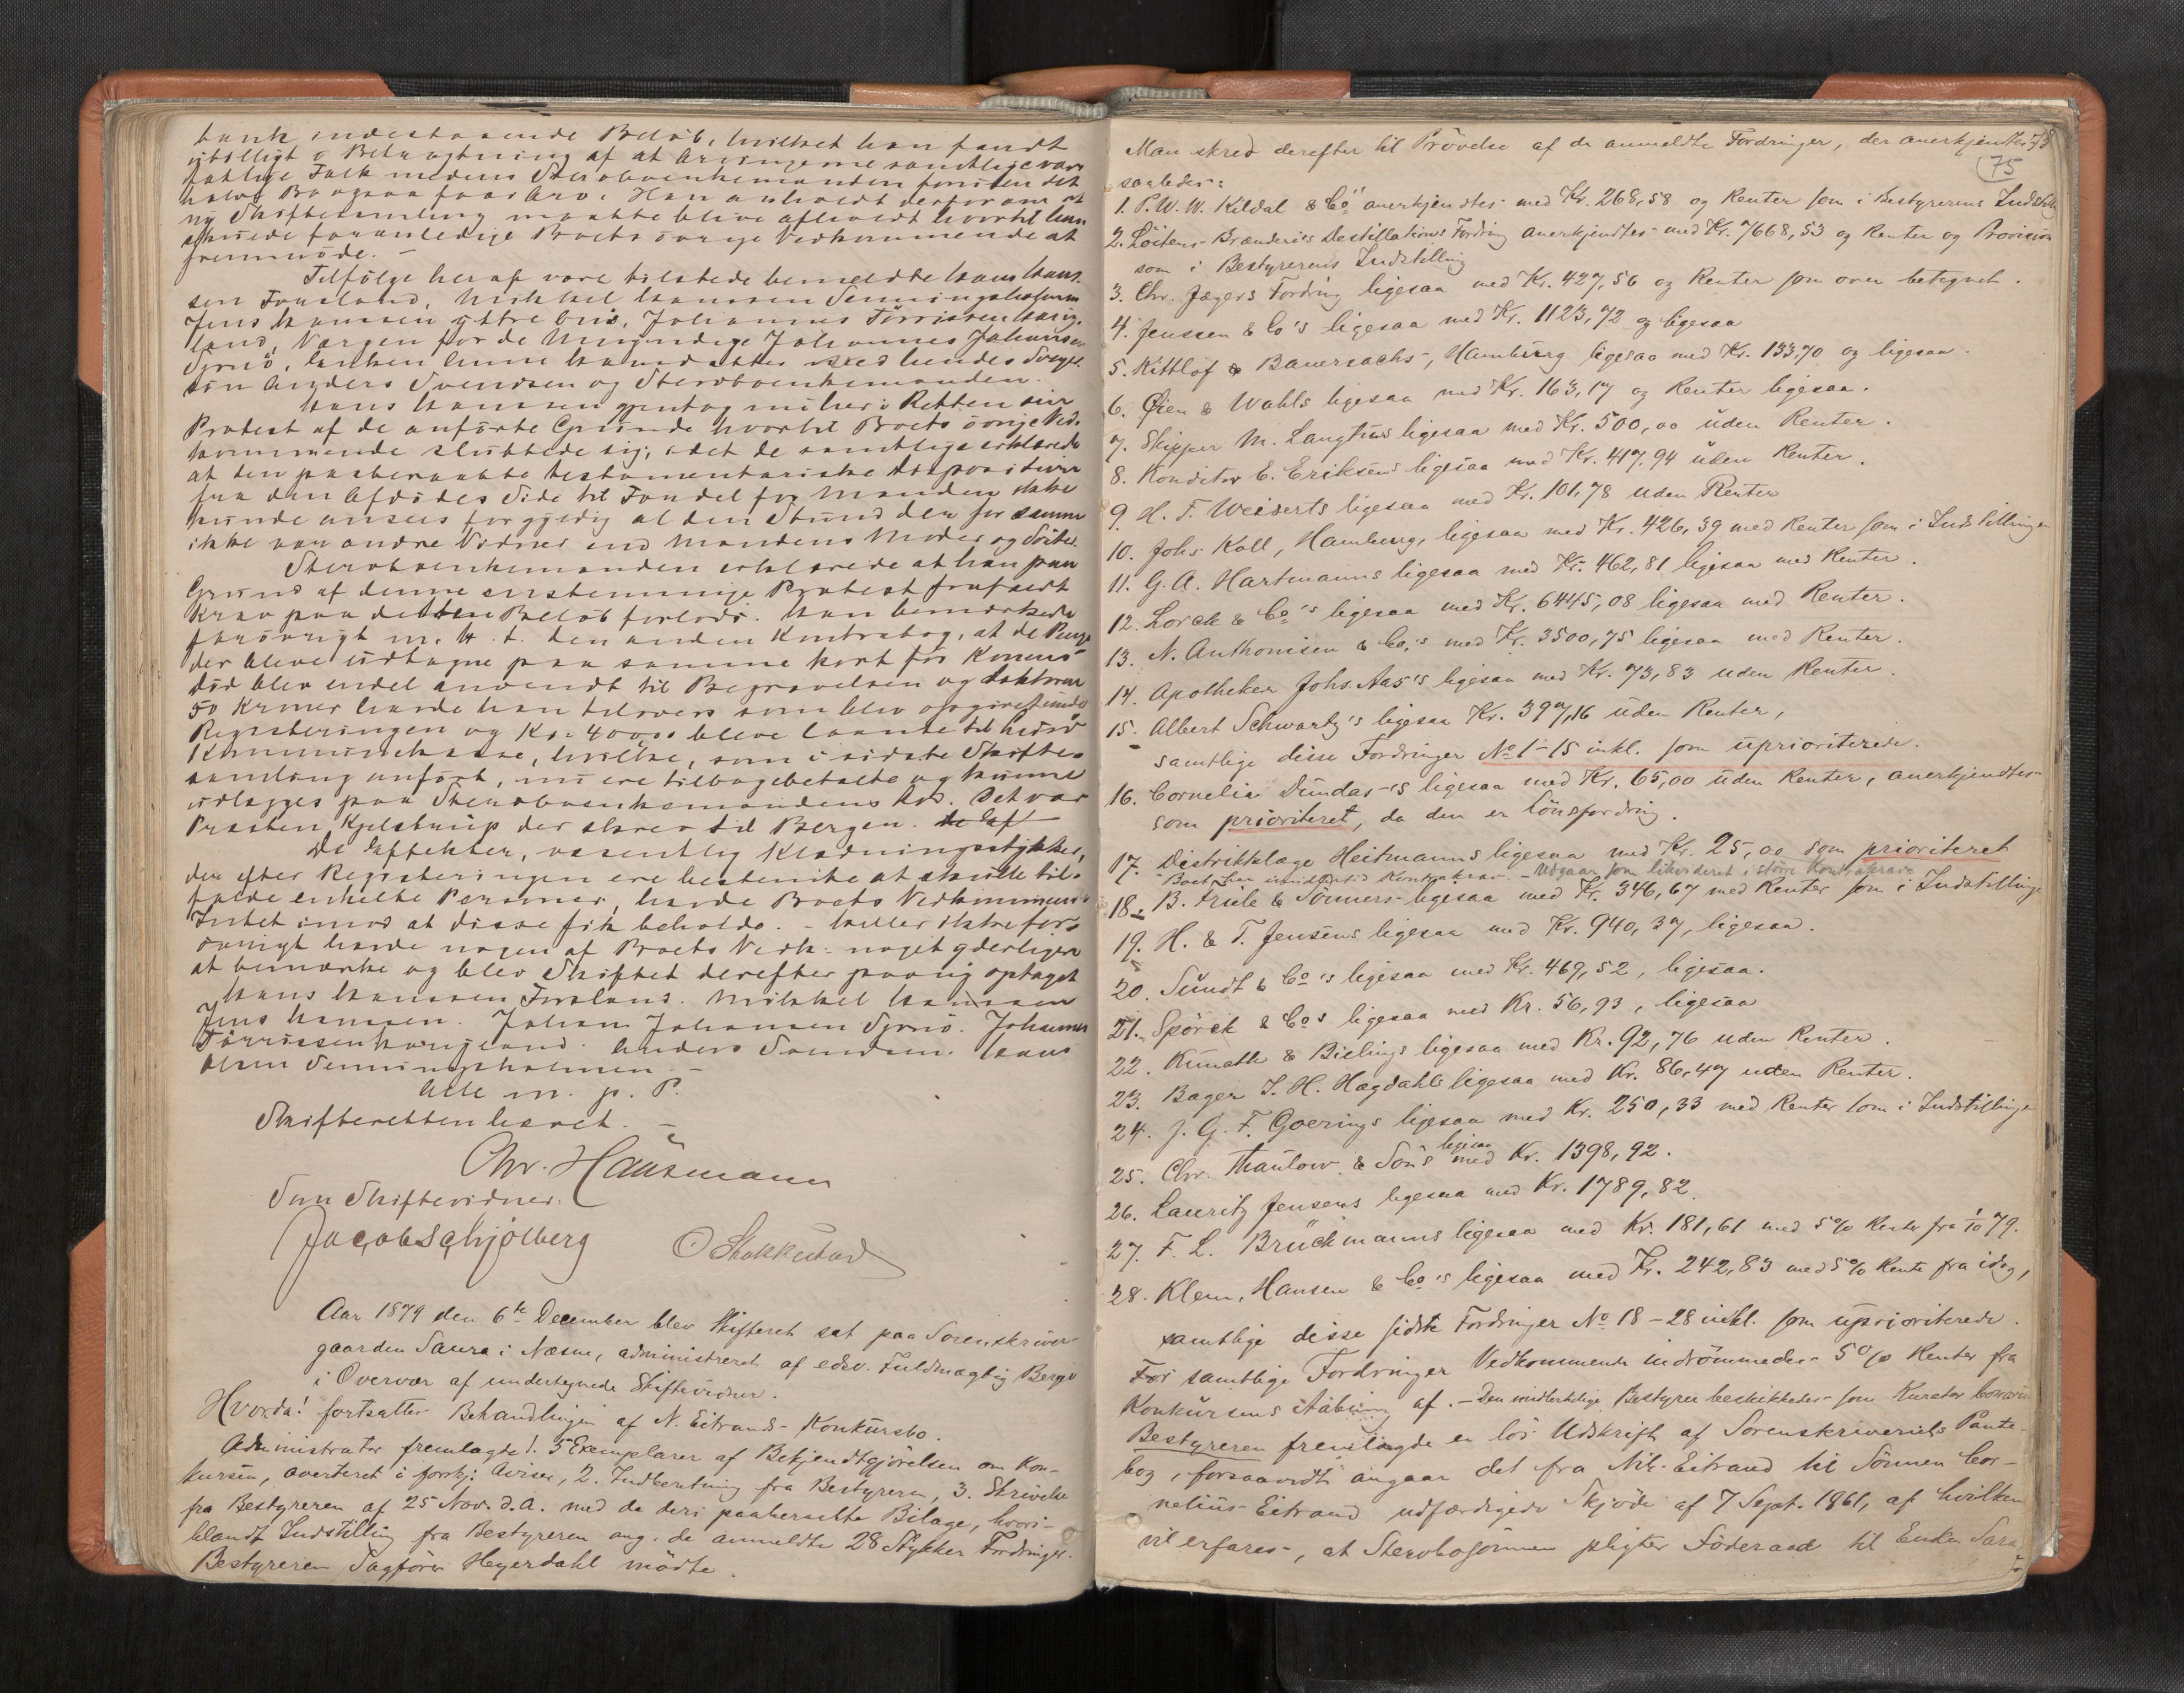 bank indestaaende Beløb, hvilket han fandt
ubilligt i Betragtning af at Arvingerne samtlige vare
Folk medens Sterboenkemanden foruden det
halve Bo ogsaa faar Arv. Han anholdt derfor om at
ny Skiftesamling maatte blive afholdt hvortil han
skulde foranledige Boets øvrige Vedkommende at
fremmøde. –
Tilfølge heraf vare tilstede bemeldte Hans Han-
sen Forsland, Mikkel Hanssen Senningsholmen
Jens Hanssen, Johannes Tørrissen
land, Værgen for de Umyndige Johannes Johansen
Sjonø, Enken Anne ved hendes Svoger-
søn Anders Svendsen og Sterboenkemanden.
Hans Hanssen gjentog nu her i Retten sin
Protest af de anførte Grunde hvortil Boets øvrige Ved-
kommende sluttede sig, idet de samtlige erklærede
at den paaberaabte testamentariske Disposition
fra den Afdødes Side til Fordel for Manden ikke
kunde ansees for gyldig al den Stund der for samme
ikke var andre Vidner end Mandens Moder og Søster.
Sterboenkemanden erklærede at han paa
Grund af denne enstemmige Protest frafaldt
Krav paa dette Beløb forlods. Han bemærkede
forøvrigt m. H. t. den anden Kontrabog, at de Penge
der bleve udtagne paa samme kort før Konens
Død blev endel anvendt til Begravelsen og Doktoren
50 Kroner havde han tilovers som blev opgivet under
Registeringen og Kr. 400,00 bleve laante til
Kommunekasse, hvilke, som i sidste Skifte-
samling anført, nu ere tilbagebetalte og kunne
udlægges paa Sterboenkemandens Lod. Det var
Præsten Kjelstrup der skrev til Bergen.
De Effekter, væsentlig Klædningsstykker,
der efter Registeringen ere bestemte at skulle til-
falde enkelte Personer, havde Boets Vedkommende
Intet imod at disse fik beholde. – Heller ikke for-
øvrigt havde nogen af Boets Vedk. noget yderligere
at bemærke og blev Skiftet derefter paany optaget
Hans Hanssen Forsland. Mikkel Hanssen
Jens Hanssen. Johan Johansen Sjonø. Johannes
Tørrissen. Anders Svendsen. Hans
Olsen Senningsholmen. –
Alle m. p. P.
Skifteretten hævet. –
Chr. Hausmann
Som Skiftevidner:
Jacob Schjølberg O Stokkeland
Aar 1879 den 6te December blev Skifteret sat paa Sorenskriver-
gaarden Saura i Næsne, administreret af edsv. Fuldmægtig Berge
i Overvær af undertegnede Skiftevidner.
Hvorda! fortsattes Behandlingen af N. Eitrands Konkursbo.
Administrator fremlagde 1. 5 Exemplarer af Bekjendtgjørelsen om Kon-
kursen, averteret i forskj. Aviser, 2. Indberetning fra Bestyreren, 3. Skrivelse
fra Bestyreren af 25 Nov. d.A. med de deri paaberaabte Bilage, hvori-
blandt Indstilling fra Bestyreren ang. de anmeldte 28 Stykker Fordringer.
Bestyreren Sagfører Heyerdahl mødte.
75
Man skred derefter til Prøvelse af de anmeldte Fordringer, der anerkjendtes
saaledes:
1. P. W. W. Kildal & Co anerkjendtes med Kr. 268,58 og Renter som i Bestyrerens Indstilling
2. Løitens Brænderies Destillations Fordring anerkjendtes med Kr. 7668,53 og Renter og Provision
som i Bestyrerens Indstilling
3. Chr. Jægers Fordring ligesaa med Kr. 427,56 og Renter som oven betegnet.
4. Jenssen & Co's ligesaa med Kr. 1123,72 og ligesaa
5. Kittlof & Bauersachs, Hamburg ligesaa med Kr. 133,70 og ligesaa.
6. Øien & Wahls ligesaa med Kr. 163,17 og Renter ligesaa.
7. Skipper M. Langfus ligesaa med Kr. 500,00 uden Renter.
8. Konditor E. Eriksens ligesaa med Kr. 417,94 uden Renter.
9. H. F. Weiserts ligesaa med Kr. 101,78 uden Renter
10. Johs Koll, Hamburg, ligesaa med Kr. 426,39 med Renter som i Indstillingen
11. G. A. Hartmanns ligesaa med Kr. 462,81 ligesaa med Renter.
12. Lorck & Co's ligesaa med Kr. 6445,08 ligesaa med Renter.
13. N. Anthonisen & Co.'s med Kr. 3500,75 ligesaa med Renter.
14. Apotheker Johs. Aas's ligesaa med Kr. 73,83 uden Renter.
15. Albert Schwartz's ligesaa Kr. 397,16 uden Renter,
samtlige disse Fordringer No 1-15 inkl. som uprioriterede.
16. Cornelia Dundas's ligesaa med Kr. 65,00 uden Renter, anerkjendtes
som prioriteret, da den er Lønsfordring.
17. Distriktslæge Heitmanns ligesaa med Kr. 25,00 som prioriteret
Boet har imidlertid Kontrakrav. – Udgaar som likvideret i større Kontrakrav
18. B. Friele & Sønners ligesaa med Kr. 346,67 med Renter som i Indstillingen
19. H. & T. Jensens ligesaa med Kr. 940,37, ligesaa.
20. Sundt & Co's ligesaa med Kr. 469,52, ligesaa.
21. Spörck & Co's ligesaa med Kr. 56,93, ligesaa
22. Kunath & Bielings ligesaa med Kr. 92,76 uden Renter.
23. Bager I. H. Hagdahls ligesaa med Kr. 86,47 uden Renter.
24. J. G. F. Goerings ligesaa med Kr. 250,33 med Renter som i Indstillingen
25. Chr. Thaulow & Søns ligesaa med Kr. 1398,92.
26. Lauritz Jensens ligesaa med Kr. 1789,82.
27. F. L. Brückmanns ligesaa med Kr. 181,61 med 5% Rente fra 1/10 79.
28. Klem, Hansen & Co's ligesaa med Kr. 242,83 med 5% Rente fra idag,
samtlige disse sidste Fordringer No 18 – 28 inkl. som uprioriterede.
For samtlige Fordringer Vedkommende indrømmedes 5% Renter fra
Konkursens Aabning af. – Den midlertidige Bestyrer beskikkedes som Kurator bonorum
Bestyreren fremlagde en løs Udskrift af Sorenskriveriets Pante-
bog, forsaavidt angaar det fra Nils Eitrand til Sønnen Cor-
nelius Eitrand udfærdigede Skjøde af 7 Sept. 1861, af hvilken
vil erfares, at Sterbosønnen pligter Föderaad til Enken Sara